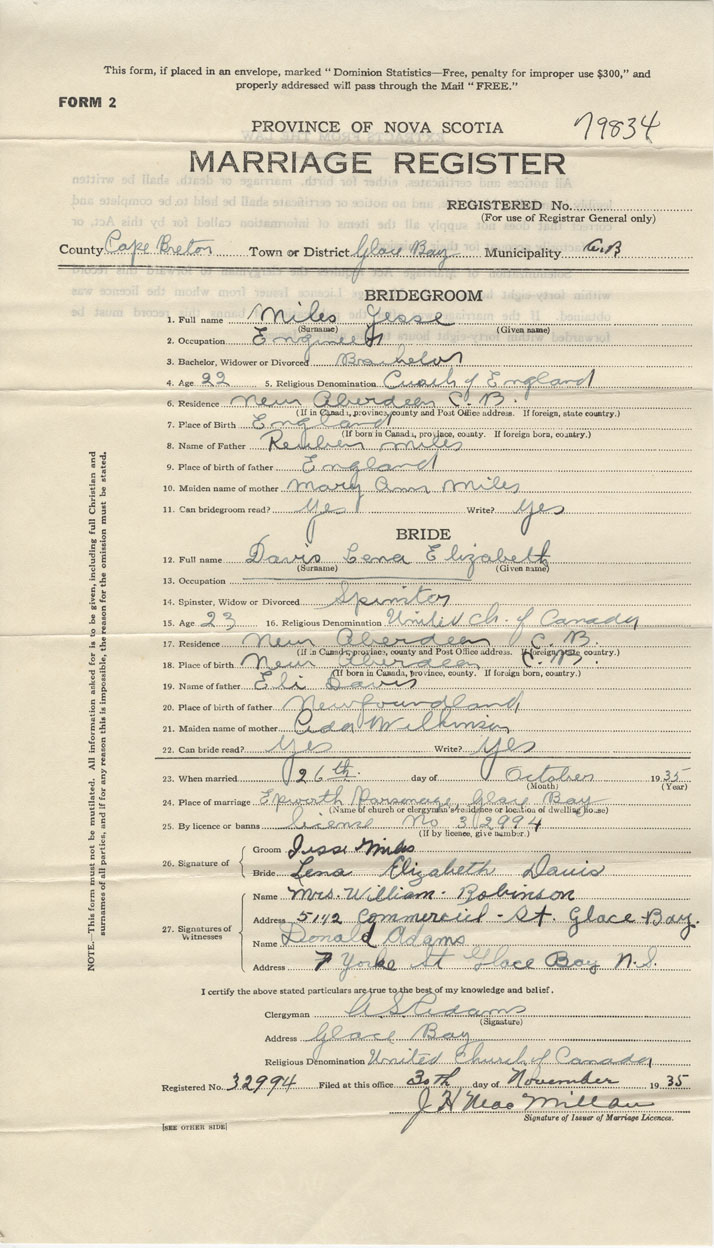 This form, if placed in an envelope, marked "Dominion Statistics—Free, penalty for improper use $300," and
properly addressed will pass through the Mail "FREE."
FORM 2
PROVINCE OF NOVA SCOTIA 79834
MARRIAGE REGISTER
REGISTERED No.
(For use of Registrar General only)
County Cape Breton Town or District Glace Bay Municipality C.B
BRIDEGROOM
1. Full name Miles Jesse
(Surname) (Given name)
2. Occupation Engineer
3. Bachelor, Widower or Divorced Bachelor
4. Age 22 5. Religious Denomination Church of England
6. Residence New Aberdeen C.B.
(If in Canada, province, county and Post Office address. If foreign, state country.)
7. Place of Birth England
(If born in Canada, province, county. If foreign born, country.)
8. Name of Father Reuben Miles
9. Place of birth of father England
10. Maiden name of mother Mary Ann Miles
11. Can bridegroom read? Yes Write? Yes
BRIDE
12. Full name Davis Lena Elizabeth
(Surname) (Given name)
13. Occupation
14. Spinster, Widow or Divorced Spinster
15. Age 23 16. Religious Denomination United Ch. of Canada
17. Residence New Aberdeen C.B.
(If in Canada, province, county and Post Office address. If foreign, state country.)
18. Place of birth New Aberdeen C.B.
(If born in Canada, province, county. If foreign born, country.)
19. Name of father Eli Davis
20. Place of birth of father Newfoundland
21. Maiden name of mother Wilkinson
22. Can bride read? Yes Write? Yes
23. When married 26th day of October 1935
(Month) (Year)
24. Place of marriage Epworth Parsonage Glace Bay
(Name of church or clergyman's residence or location of dwelling house)
25. By licence or banns license No 32994
(If by licence, give number.)
26. Signature of
Groom Jesse Miles
Bride Lena Elizabeth Davis
27. Signatures of Witnesses
Name Mrs. William Robinson
Address 5142 Commercial - St. Glace Bay.
Name Donald Adams
Address 7 Yorke St Glace Bay N.S.
I certify the above stated particulars are true to the best of my knowledge and belief.
Clergyman Adams
(Signature)
Address Glace Bay
Religious Denomination United Church of Canada
Registered No. 32994 Filed at this office 30th day of November 1935
J H MacMillan
Signature of Issuer of Marriage Licences.
[SEE OTHER SIDE]
NOTE.—This form must not be mutilated. All information asked for is to be given, including full Christian and
surnames of all parties, and if for any reason this is impossible, the reason for the omission must be stated.